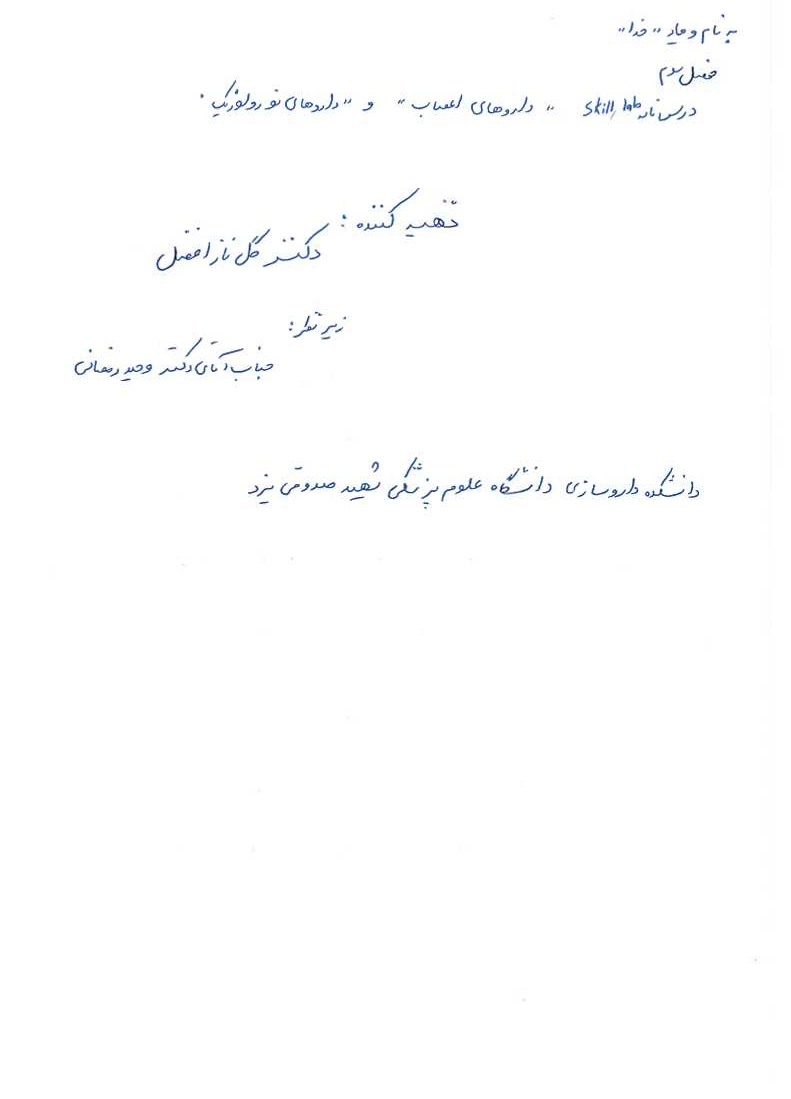 به نام و یاد "خدا"
فصل سوم
درسنامه skill lab "داروهای اعصاب" و "داروهای نورولوژیک".
تهیه کننده:
دکتر گل ناز افضل
زیر نظر:
جناب آقای دکتر وحید رمضانی
دانشکده داروسازی دانشگاه علوم پزشکی شهید صدوقی یزد